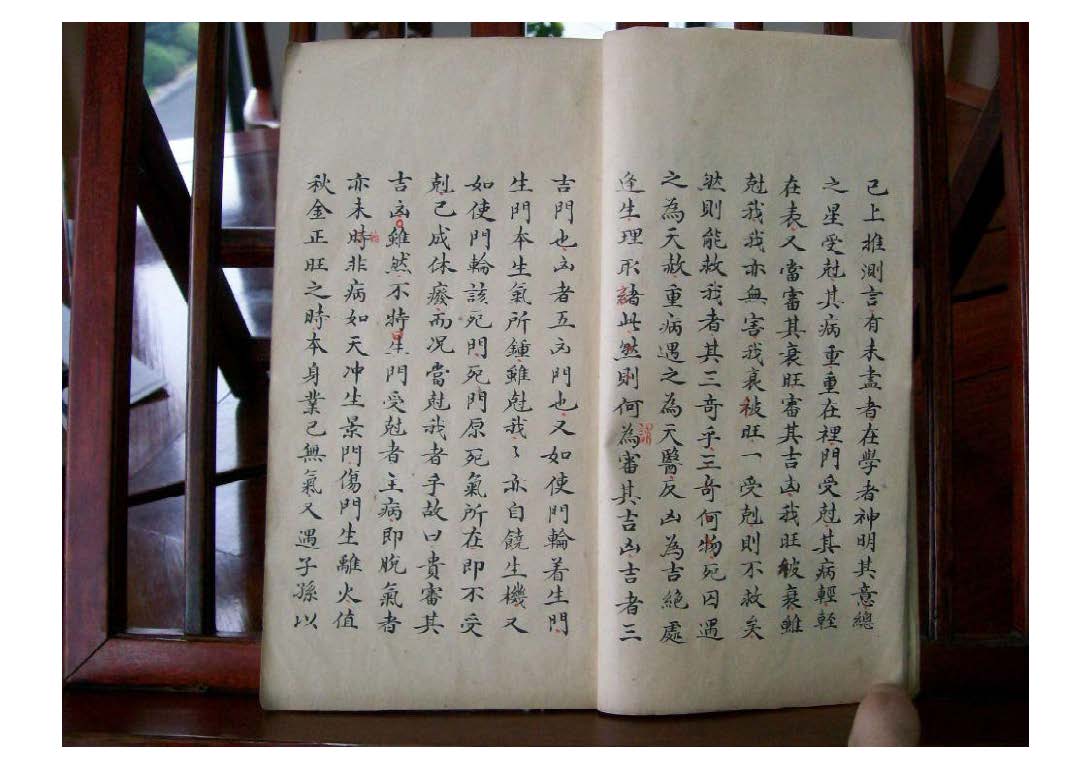 已上推測言有未盡者在學者神明其意總
之星受尅其病重重在裡門受尅其病輕輕
在表又當審其衰旺審其吉凶我旺彼衰雖
尅我我亦無害我衰被旺一受剋則不救矣
然則能救我者其三奇乎三奇何物死囚遇
之為天赦重病遇之為天醫反凶為吉絕處
逢生理形諸此然則何為審其吉凶吉者三
謂
吉門也凶者五凶門也又如使門輪着生門
生門本生氣所鍾雖尅我々亦自饒生機又
如使門輪該死門死門原死氣所在即不受
剋已成休癈而况當尅我者乎故曰貴審其
吉凶雖然不特星門受尅者主病即脫氣者
亦未時非病如天冲生景門傷門生離火值
秋金正旺之時本身業已無氣又遇子孫以